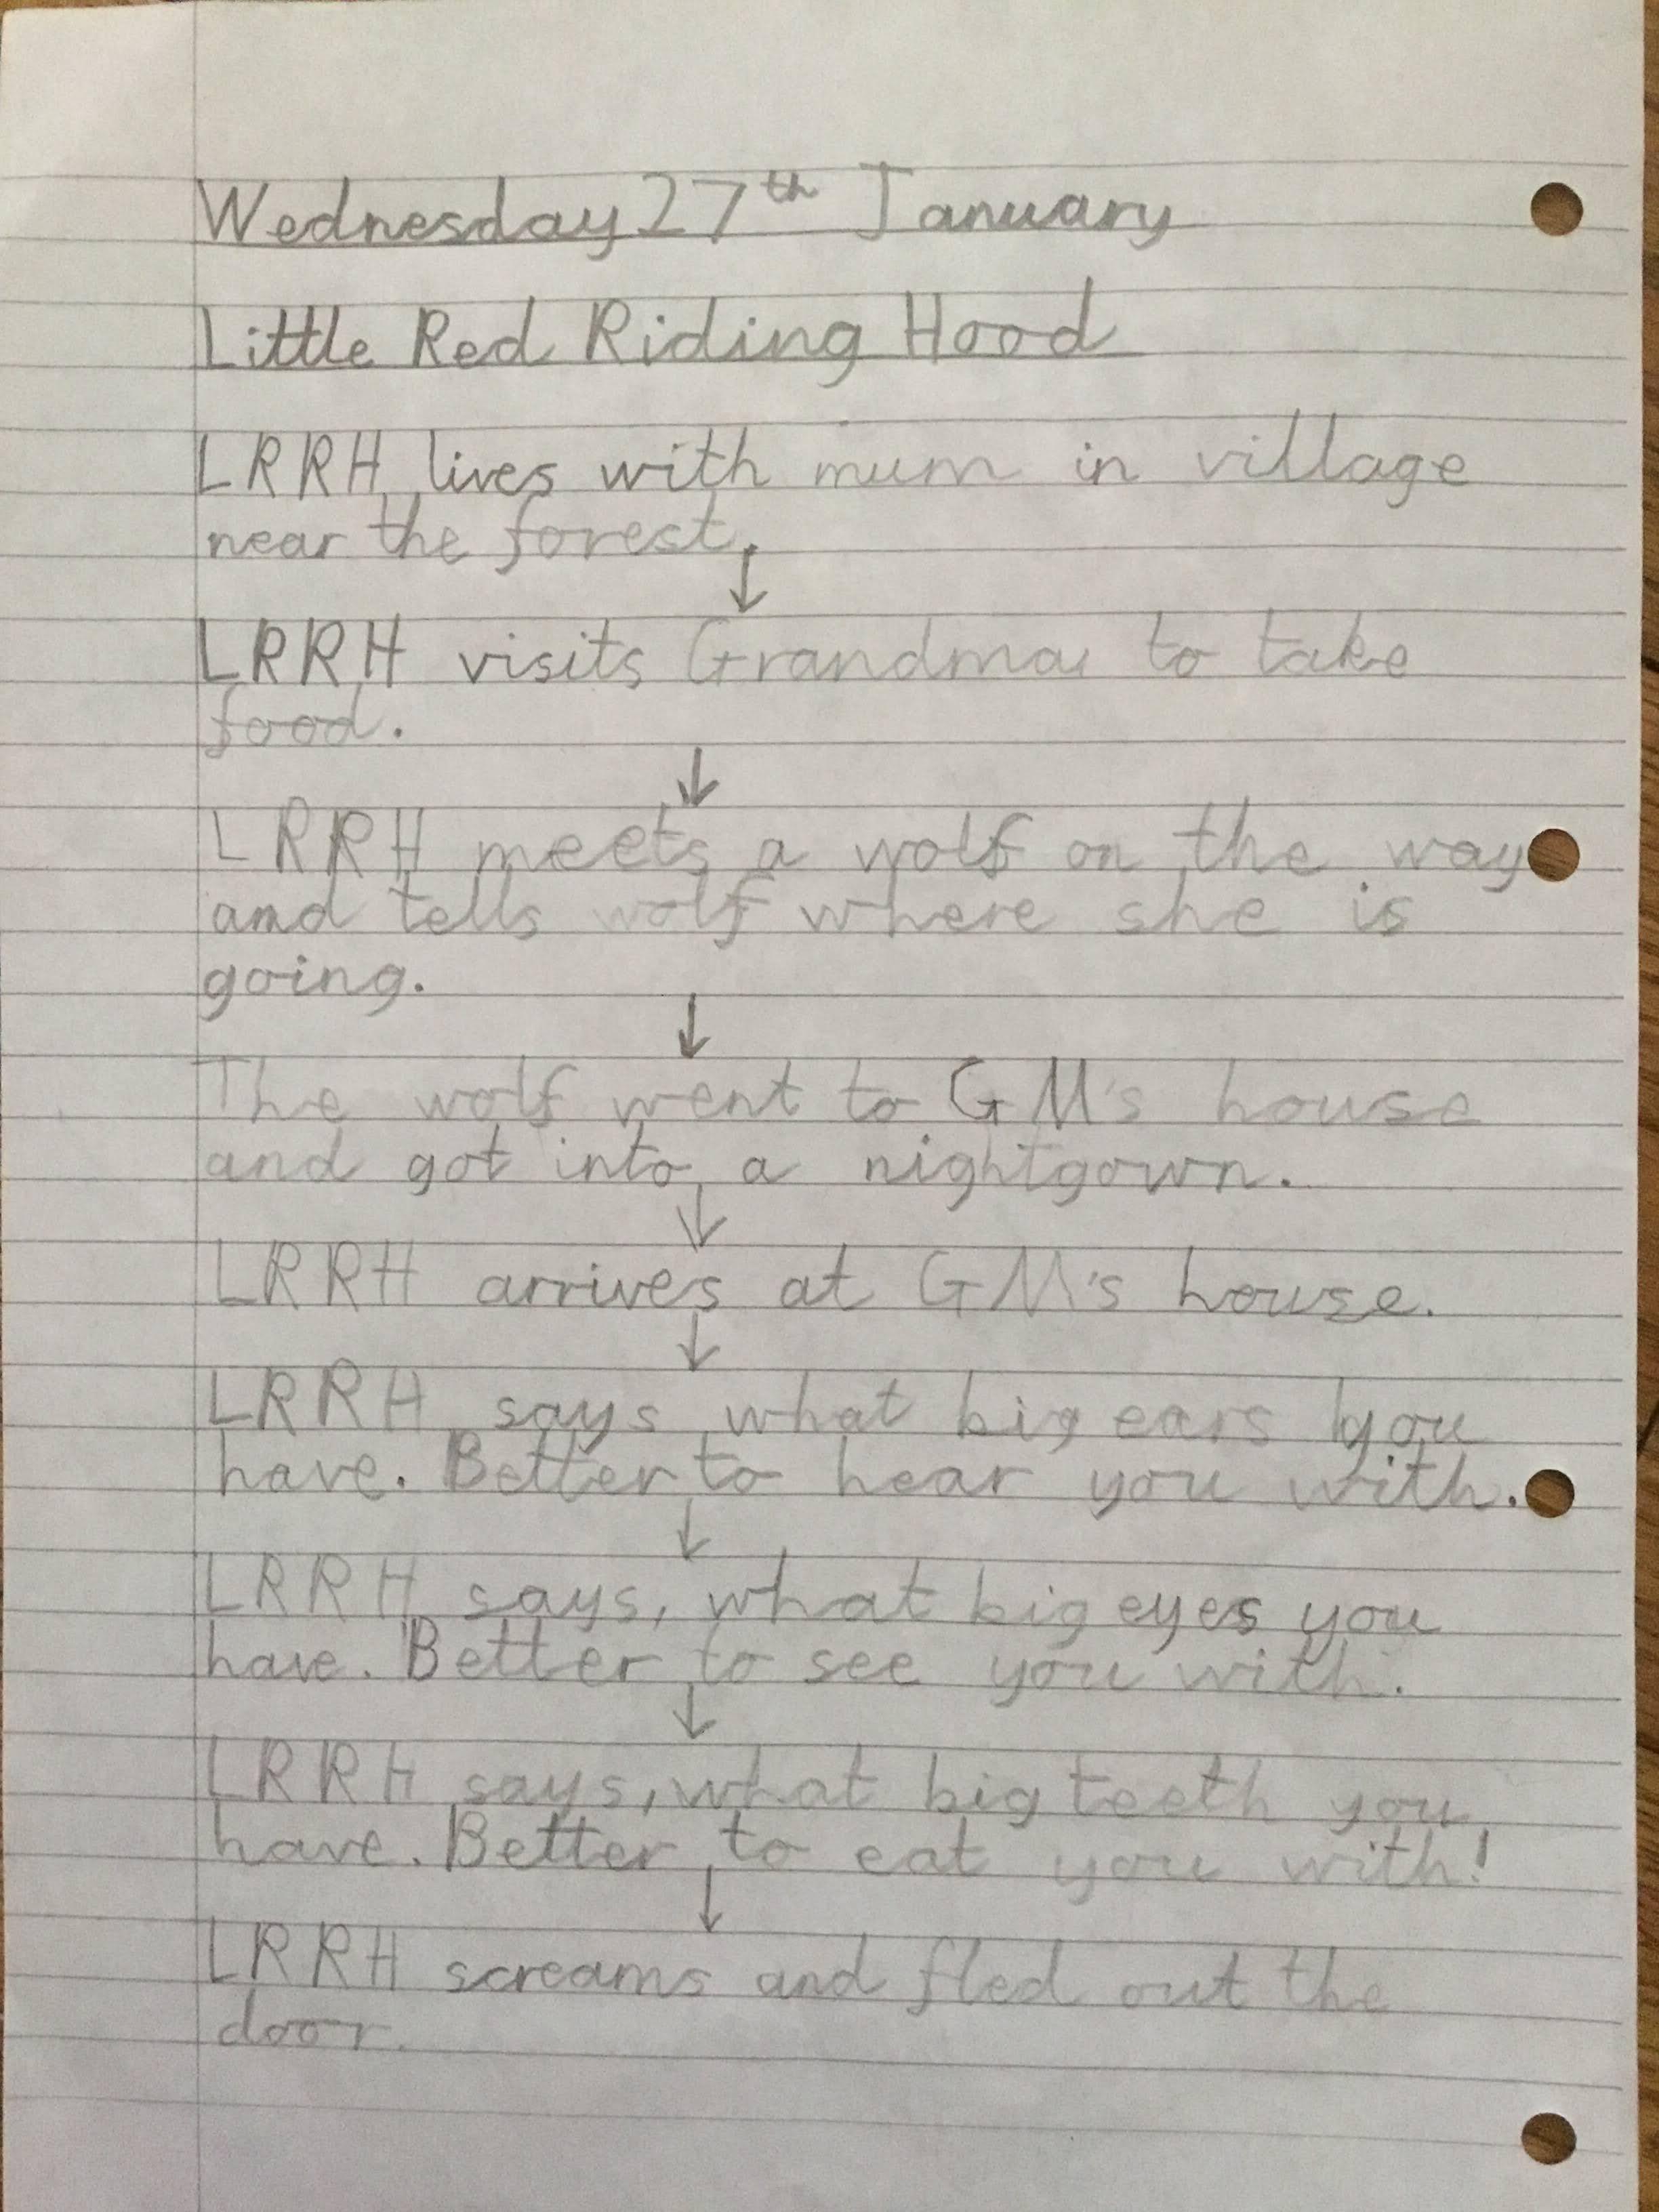 Wednesday 27th January
Little Red Riding Hood
LRRH lives with mum in village
near the forest.
↓
LRRH visits Grandma to take
food.
↓
LRRH meets a wolf on the way
and tells wolf where she is
going.
↓
The wolf went to GM's house
and got into a nightgown.
↓
LRRH arrives at GM's house.
↓
LRRH says, what big ears you
have. Better to hear you with.
↓
LRRH says, what big eyes you
have. Better to see you with.
↓
LRRH says, what big teeth you
have. Better to eat you with!
↓
LRRH screams and fled out the
door.